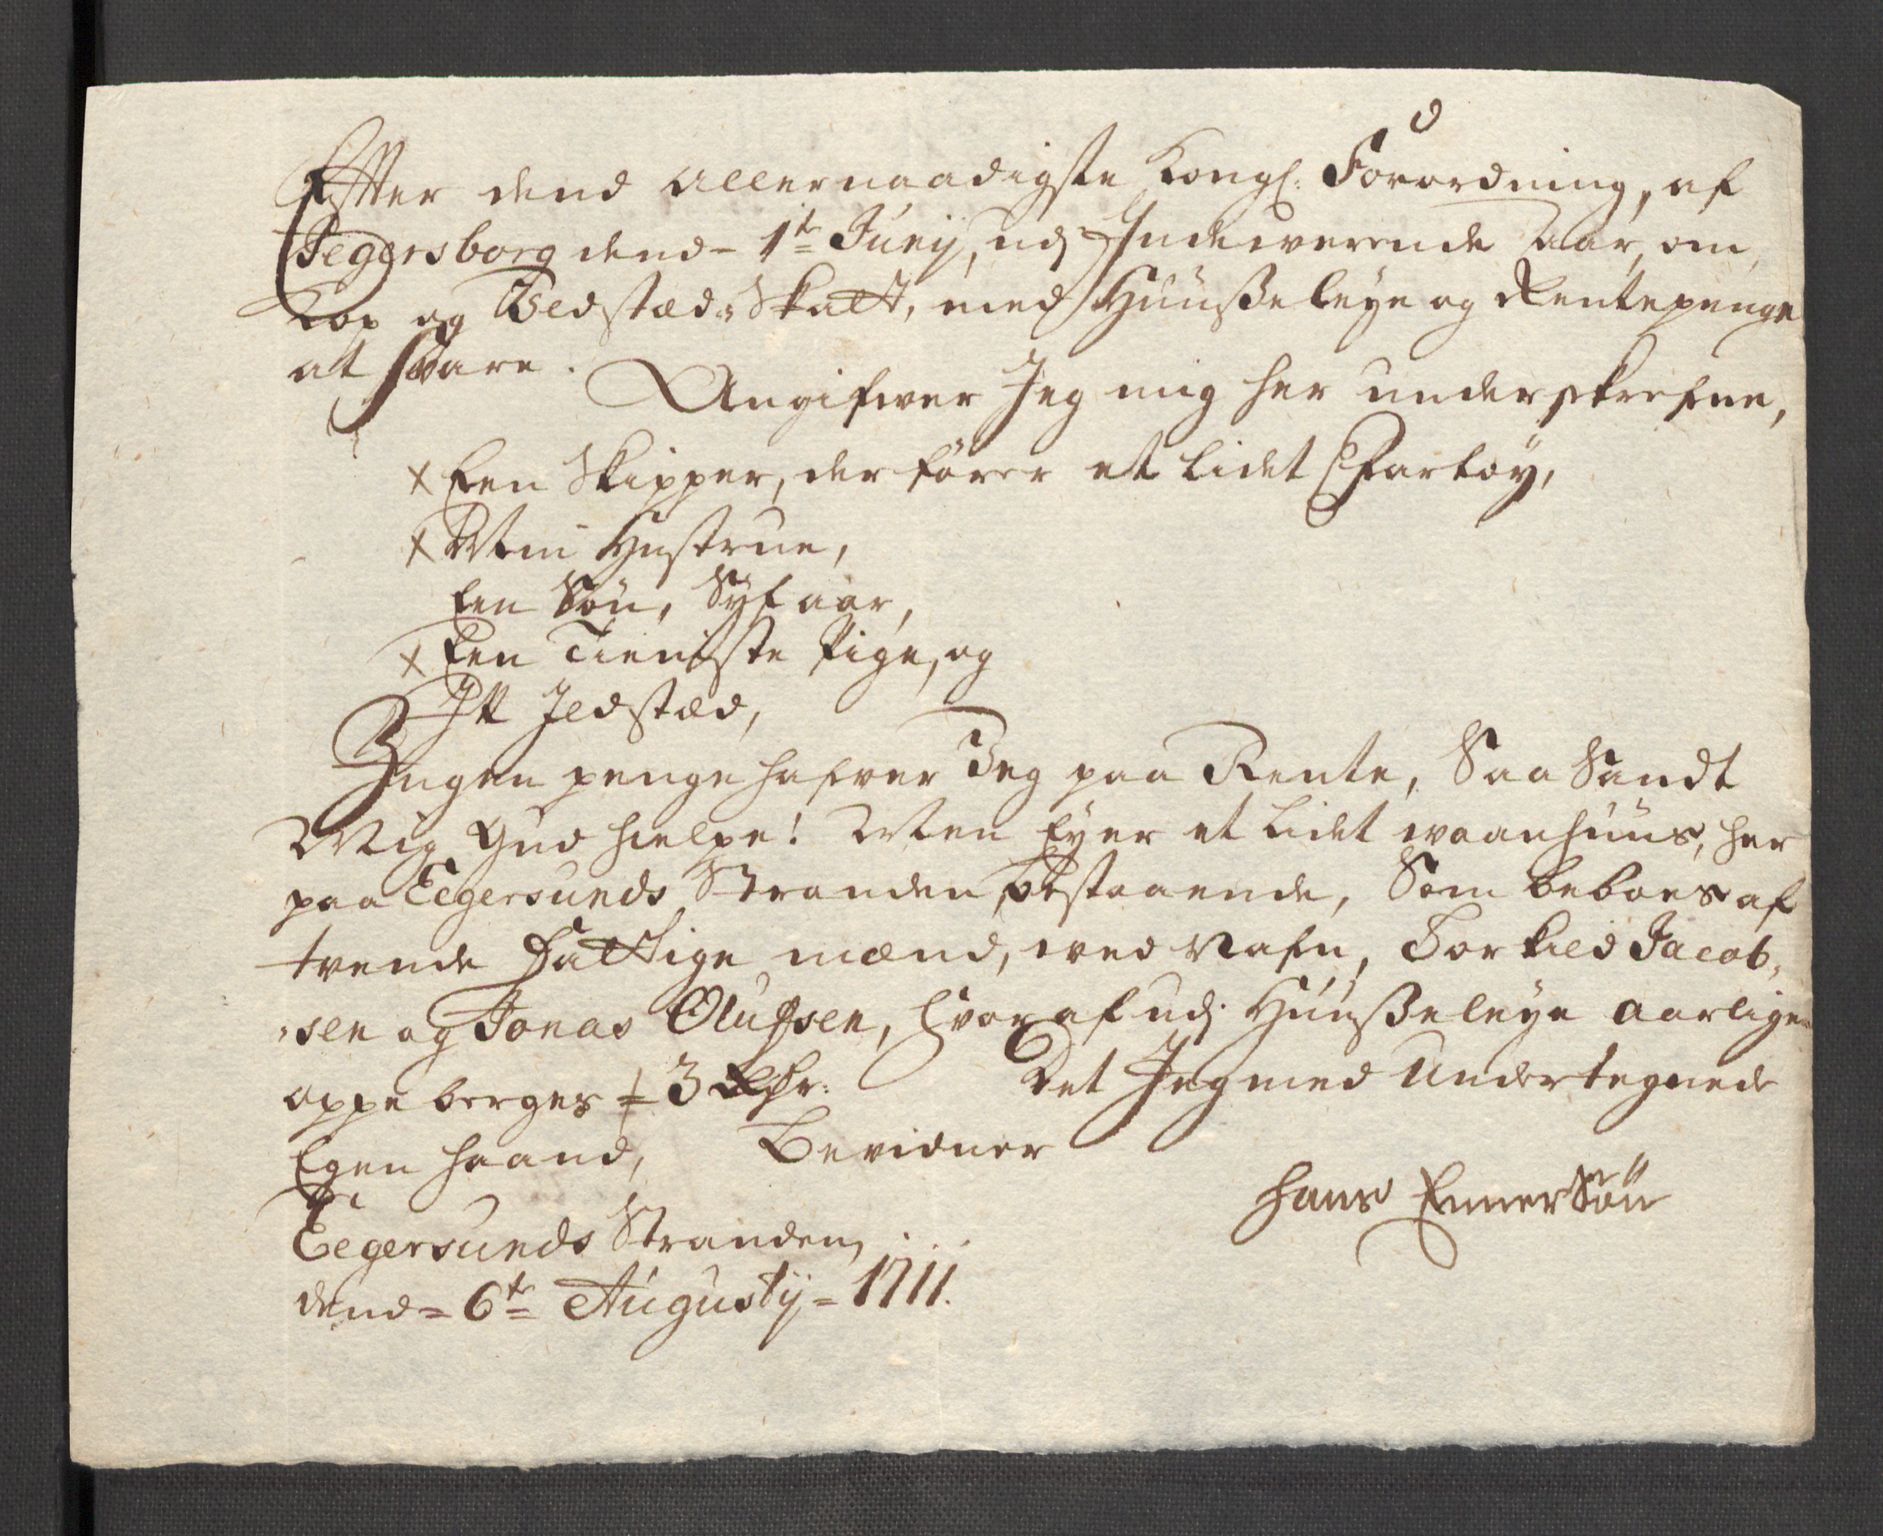 d
Efter dend allernaadigste Kongl: Forordning, af
Jegersborg dend = 1te Junij, udj Indewerende Aar, om
Kop og Ildstæd=Skatt, med Huußeleye og Rentepenge
at svare. Angifwer Jeg mig her underskrefne,
x Een Skipper, der fører et lidet Fartøy,
x Min Hustrue,
Een Søn, Syf aar,
x Een Tieniste Pige, og
Itt Ildstæd,
Ingen penge hafwer Jeg paa Rente, Saa Sandt
Mig Gud hielpe! Men Eyer et lidet waanhuus, her
paa Eegersunds Stranden bestaaende, Som beboes af
tvende Fattige mænd, wed Nafn, Torkild Jacob,
,sen og Jonas Oluffsen, hvoraf udj Huußeleye aarligen
oppeberges = 3 Rdr: Det Jeg med Undertegnede
Egen haand, Bevidner
Eegersunds Stranden,
dend = 6te Augustij = 1711.
Hans EnnerSøn